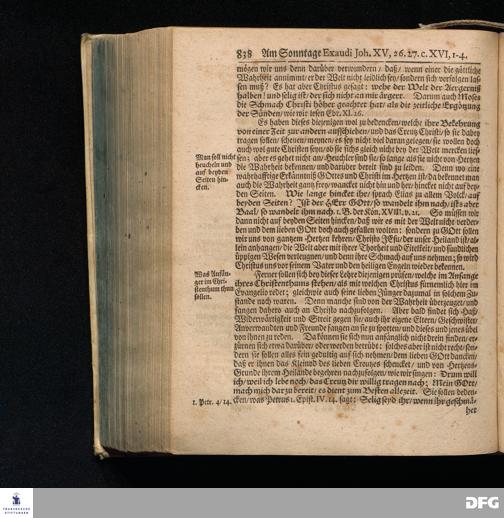 838 Am Sonntage Exaudi Joh. XV, 26. 27. c. XVI, 1-4.
mögen wir uns denn darüber verwundern/ daß/ wenn einer die göttliche
Wahrheit annimmt/ er der Welt nicht leidlich sey/ sondern sich verfolgen las-
sen muß? Es hat aber Christus gesagt: wehe der Welt der Aergerniß
halben! und selig ist/ der sich nicht an mir ärgert. Darum auch Moses
die Schmach Christi höher geachtet hat/ als die zeitliche Ergötzung
der Sünden/ wie wir lesen Ebr. XI. 26.
Es haben dieses diejenigen wol zu bedencken/ welche ihre Bekehrung
von einer Zeit zur andern aufschieben/ und das Creutz Christi/ so sie dabey
tragen sollen/ scheuen/ meynen/ es sey nicht viel daran gelegen/ sie wollen doch
auch wol gute Christen seyn/ ob sie sichs gleich nicht bey der Welt mercken lies-
Man soll nicht
heucheln und
auf beyden
Seiten hin-
cken.
sen; aber es gehet nicht an/ Heuchler sind sie/ so lange als sie nicht von Hertzen
die Wahrheit bekennen/ und darüber bereit sind zu leiden. Denn wo eine
wahrhafftige Erkänntniß Gottes und Christi im Hertzen ist/ da bekennet man
auch die Wahrheit gantz frey/ wancket nicht hin und her/ hincket nicht auf bey-
den Seiten. Wie lange hincket ihr/ sprach Elias zu allem Volck/ auf
beyden Seiten? Ist der HErr GOtt/ so wandelt ihm nach/ ists aber
Baal/ so wandelt ihm nach. 1. B. der Kön. XVIII. v. 21. So müssen wir
dann nicht auf beyden Seiten hincken/ daß wir es mit der Welt nicht verder-
ben und dem lieben GOtt doch auch gefallen wollten: sondern zu GOtt sollen
wir uns von gantzem Hertzen kehren/ Christo JEsu/ der unser Heiland ist/ al-
lein anhangen/ die Welt aber mit ihrer Thorheit und Eitelkeit/ und sündlichen
üppigen Wesen verleugnen/ und denn ihre Schmach auf uns nehmen; so wird
Christus uns vor seinem Vater und den heiligen Engeln wieder bekennen.
Was Anfän-
ger im Chri-
stenthum thun
sollen.
Ferner sollen sich bey dieser Lehre diejenigen prüfen/ welche im Anfange
ihres Christenthums stehen/ als mit welchen Christus fürnemlich hier im
Evangelio redet; gleichwie auch seine lieben Jünger dazumal in solchem Zu-
stande noch waren. Denn manche sind von der Wahrheit überzeuget/ und
fangen dahero auch an Christo nachzufolgen. Aber bald findet sich Haß/
Widerwärtigkeit und Streit gegen sie/ auch ihr eigene Eltern/ Geschwister/
Anverwandten und Freunde fangen an sie zu spotten/ und dieses und jenes übel
von ihnen zu reden. Da können sie sich nun anfänglich nicht drein finden/ er-
zürnen sich etwa darüber/ oder werden betrübt: solches aber ist nicht recht/ son-
dern sie sollen alles fein gedultig auf sich nehmen/ dem lieben GOtt dancken/
daß er ihnen das Kleinod des lieben Creutzes schencket/ und von Hertzens-
Grunde ihrem Heilande begehren nachzufolgen/ wie wir singen: Drum will
ich/ weil ich lebe noch/ das Creutz dir willig tragen nach; Mein GOtt/
mach mich darzu bereit/ es dient zum Besten allezeit. Sie sollen beden-
1. Petr. 4/14.
cken/ was Petrus 1. Epist. IV. 14. sagt: Selig seyd ihr/ wenn ihr geschmä-
het
FRANCKESCHE
STIFTUNGEN
DFG